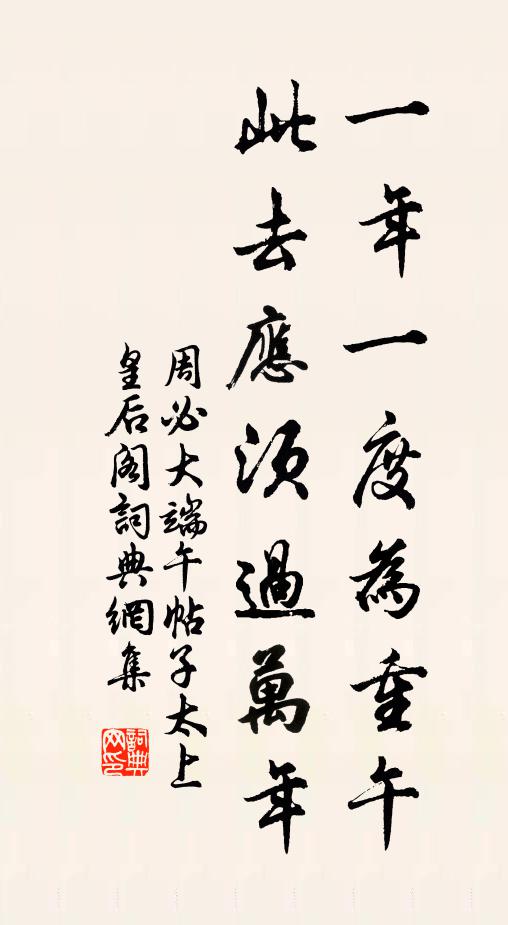 一年一度為重午
此去應須過萬年
周必大端午帖子太上
皇后閣詞典網集
詞典
网印